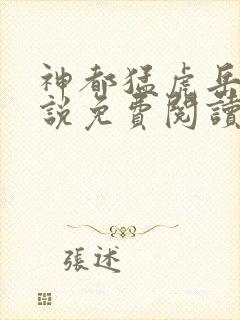 神都猛虎岳
說免費閱讀
張述